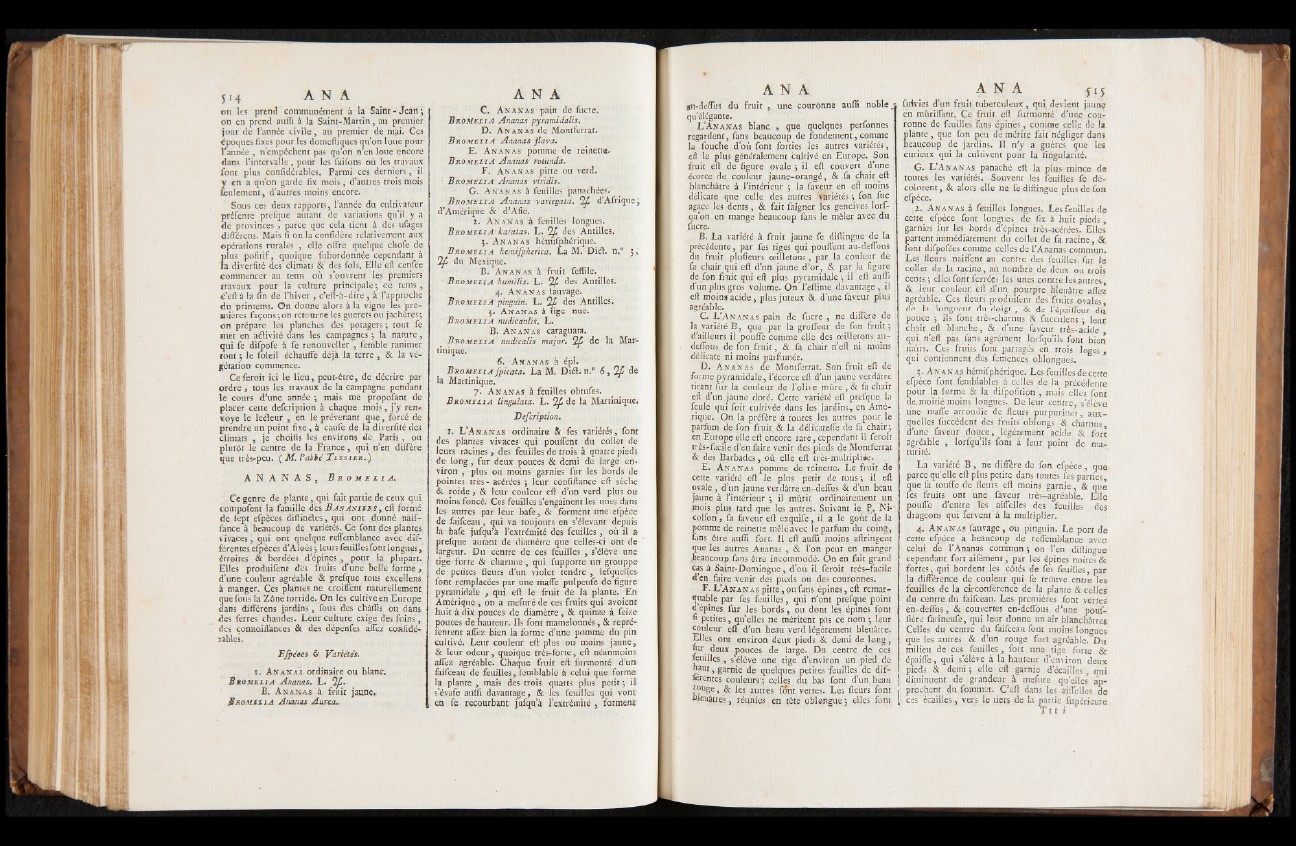 514 ANA
on les prend communément à la Saint-Jean ;
on en prend auſſi à la Saint-Martin, au premier
jour de l'année civile, au premier de mai. Ces
époques fixes pour les domeſtiques qu'on loue pour
l'année, n'empêchent pas qu'on n'en loue encore
dans l'intervalle, pour les ſaiſons où les travaux
ſont plus conſidérables. Parmi ces derniers, il
y en a qu'on garde ſix mois, d'autres trois mois
ſeulement, d'autres moins encore.
Sous ces deux rapports, l'année du cultivateur
préſente preſque autant de variations qu'il y a
de provinces, parce que cela tient à des uſages
différens. Mais ſi on la conſidère relativement aux
opérations rurales, elle offre quelque choſe de
plus poſitif, quoique ſubordonnée cependant à
la diverſité des climats & des ſols. Elle eſt cenſée
commencer au tems où s'ouvrent les premiers
travaux pour la culture principale ; ce tems,
c'eſt à la fin de l'hiver, c'eſt-à-dire, à l'approche
du printems. On donne alors à la vigne les pre-
mières façons ; on retourne les guerets ou jachères ;
on prépare les planches des potagers ; tout ſe
met en activité dans les campagnes ; la nature,
qui ſe diſpoſe à ſe renouveller, ſemble ranimer
tout ; le ſoleil échauffe déjà la terre, & la vé-
gétation commence.
Ce ſeroit ici le lieu, peut-être, de décrire par
ordre, tous les travaux de la campagne pendant
le cours d'une année ; mais me propoſant de
placer cette deſcription à chaque mois, j'y ren-
voye le lecteur, en le prévenant que, forcé de
prendre un point fixe, à cauſe de la diverſité des
climats, je choiſis les environs de Paris, ou
plutôt le centre de la France, qui n'en diffère
que très-peu. (M. l'abbé TESSIER.)
ANANAS, BROMELIA.
Ce genre de plante, qui fait partie de ceux qui
compoſent la famille des BANANIERS, eſt formé
de ſept eſpèces diſtinctes, qui ont donné naiſ-
ſance à beaucoup de variétés. Ce ſont des plantes
vivaces, qui ont quelque reſſemblance avec dif-
férentes eſpèces d'Aloës ; leurs feuilles ſont longues,
étroites & bordées d'épines, pour la plupart.
Elles produiſent des fruits d'une belle forme,
d'une couleur agréable & preſque tous excellens
à manger. Ces plantes ne croiſſent naturellement
que ſous la Zône torride. On les cultive en Europe
dans différens jardins, ſous des châſſis ou dans
des ſerres chaudes. Leur culture exige des ſoins,
des connoiſſances & des dépenſes aſſez conſidé-
rables.
Eſpèces & Variétés.
1. ANANAS ordinaire ou blanc.
BROMELIA Ananas. L. ♃.
B. ANANAS à fruit jaune.
BROMELIA Ananas Aurea.
ANA
C. ANANAS pain de ſucre.
BROMELIA Ananas pyramidalis.
D. ANANAS de Montſerrat.
BROMELIA Ananas flava.
E. ANANAS pomme de reinette.
BROMELIA Ananas rotunda.
F. ANANAS pitte ou verd.
BROMELIA Ananas viridis.
G. ANANAS à feuilles panachées.
BROMELIA Ananas variegata. ♃ d'Afrique,
d'Amérique & d'Aſie.
2. ANANAS à feuilles longues.
BROMELIA karatas. L. ♃ des Antilles.
3. ANANAS hémiſphérique.
BROMELIA hemiſphærica. La M. Dict. n.° 3,
♃ du Mexique.
B. ANANAS à fruit ſeſſile.
BROMELIA humilis. L. ♃ des Antilles.
4. ANANAS ſauvage.
BROMELIA pinguin. L. ♃ des Antilles.
5. ANANAS à tige nue.
BROMELIA nudicaulis. L.
B. ANANAS caraguata.
BROMELIA nudicalis major. ♃ de la Mar-
tinique.
6. ANANAS à épi.
BROMELIA ſpicata. La M. Dict. n.° 6, ♃ de
la Martinique.
7. ANANAS à feuilles obtuſes.
BROMELIA lingulata. L. ♃ de la Martinique.
Deſcription.
1. L'ANANAS ordinaire & ſes variétés, ſont
des plantes vivaces qui pouſſent du collet de
leurs racines, des feuilles de trois à quatre pieds
de long, ſur deux pouces & demi de large en-
viron, plus ou moins garnies ſur les bords de
pointes très-acérées ; leur conſiſtance eſt sèche
& roide, & leur couleur eſt d'un verd plus ou
moins foncé. Ces feuilles s'engaînent les unes dans
les autres par leur baſe, & forment une eſpèce
de faiſceau, qui va toujours en s'élevant depuis
la baſe juſqu'à l'extrêmité des feuilles, où il a
preſque autant de diamètre que celles-ci ont de
largeur. Du centre de ces feuilles, s'élève une
tige forte & charnue, qui ſupporte un grouppe
de petites fleurs d'un violet tendre, leſquelles
ſont remplacées par une maſſe pulpeuſe de figure
pyramidale, qui eſt le fruit de la plante. En
Amérique, on a meſuré de ces fruits qui avoient
huit à dix pouces de diamètre, & quinze à ſeize
pouces de hauteur. Ils ſont mamelonnés, & repré-
ſentent aſſez bien la forme d'une pomme du pin
cultivé. Leur couleur eſt plus ou moins jaune,
& leur odeur, quoique très-forte, eſt néanmoins
aſſez agréable. Chaque fruit eſt ſurmonté d'un
faiſceau de feuilles, ſemblable à celui que forme
la plante, mais des trois quarts plus petit ; il
s'évaſe auſſi davantage, & les feuilles qui vont
en ſe recourbant juſqu'à l'extrémité, forment
ANA
au-deſſus du fruit, une couronne auſſi noble
qu'élégante.
L'ANANAS blanc, que quelques perſonnes
regardent, ſans beaucoup de fondement, comme
la ſouche d'où ſont ſorties les autres variétés,
eſt le plus généralement cultivé en Europe. Son
fruit eſt de figure ovale ; il eſt couvert d'une
écorce de couleur jaune-orangé, & ſa chair eſt
blanchâtre à l'intérieur ; la ſaveur en eſt moins
délicate que celle des autres variétés ; ſon ſuc
agace les dents, & fait ſaigner les gencives lorſ-
qu'on en mange beaucoup ſans le mêler avec du
ſucre.
B. La variété à fruit jaune ſe diſtingue de la
précédente, par ſes tiges qui pouſſent au-deſſous
du fruit pluſieurs œilletons, par la couleur de
ſa chair qui eſt d'un jaune d'or, & par la figure
de ſon fruit qui eſt plus pyramidale ; il eſt auſſi
d'un plus gros volume. On l'eſtime davantage, il
eſt moins acide, plus juteux & d'une ſaveur plus
agréable.
C. L'ANANAS pain de ſucre, ne diffère de
la variété B, que par la groſſeur de ſon fruit ;
d'ailleurs il pouſſe comme elle des œilletons au-
deſſous de ſon fruit, & ſa chair n'eſt ni moins
délicate ni moins parfumée.
D. ANANAS de Montſerrat. Son fruit eſt de
forme pyramidale, l'écorce eſt d'un jaune verdâtre
tirant ſur la couleur de l'olive mûre, & ſa chair
eſt d'un jaune doré. Cette variété eſt preſque la
ſeule qui ſoit cultivée dans les jardins, en Amé-
rique. On la préfère à toutes les autres pour le
parfum de ſon fruit & la délicateſſe de ſa chair ;
en Europe elle eſt encore rare, cependant il ſeroit
très-facile d'en faire venir des pieds de Montſerrat
& des Barbades, où elle eſt très-multipliée.
E. ANANAS pomme de reinette. Le fruit de
cette variété eſt le plus petit de tous ; il eſt
ovale, d'un jaune verdâtre en-deſſus & d'un beau
jaune à l'intérieur ; il mûrit ordinairement un
mois plus tard que les autres. Suivant le P. Ni-
colſon, ſa ſaveur eſt exquiſe, il a le goût de la
pomme de reinette mêlé avec le parfum du coing,
ſans être auſſi fort. Il eſt auſſi moins aſtringent
que les autres Ananas, & l'on peut en manger
beaucoup ſans être incommodé. On en fait grand
cas à Saint-Domingue, d'où il ſeroit très-facile
d'en faire venir des pieds ou des couronnes.
F. L'ANANAS pitte, ou ſans épines, eſt remar-
quable par ſes feuilles, qui n'ont preſque point
d'épines ſur les bords, ou dont les épines ſont
ſi petites, qu'elles ne méritent pas ce nom ; leur
couleur eſt d'un beau verd légèrement bleuâtre.
Elles ont environ deux pieds & demi de long,
ſur deux pouces de large. Du centre de ces
feuilles, s'élève une tige d'environ un pied de
haut, garnie de quelques petites feuilles de dif-
férentes couleurs ; celles du bas ſont d'un beau
rouge, & les autres ſont vertes. Les fleurs ſont
bleuâtres, réunies en tête oblongue ; elles ſont
ANA 515
ſuivies d'un fruit tuberculeux, qui devient jaune
en mûriſſant. Ce fruit eſt ſurmonté d'une cou-
ronne de feuilles ſans épines, comme celle de la
plante, que ſon peu de mérite fait négliger dans
beaucoup de jardins. Il n'y a guères que les
curieux qui la cultivent pour la ſingularité.
G. L'ANANAS panaché eſt la plus mince de
toutes les variétés. Souvent les feuilles ſe dé-
colorent, & alors elle ne ſe diſtingue plus de ſon
eſpèce.
2. ANANAS à feuilles longues. Les feuilles de
cette eſpèce ſont longues de ſix à huit pieds,
garnies ſur les bords d'épines très-acérées. Elles
partent immédiatement du collet de ſa racine, &
ſont diſpoſées comme celles de l'Ananas commun.
Les fleurs naiſſent au centre des feuilles ſur le
collet de la racine, au nombre de deux ou trois
cents ; elles ſont ſerrées les unes contre les autres,
& leur couleur eſt d'un pourpre bleuâtre aſſez
agréable. Ces fleurs produiſent des fruits ovales,
de la longueur du doigt, & de l'épaiſſeur du
pouce ; ils ſont très-charnus & ſucculens ; leur
chair eſt blanche, & d'une ſaveur très-acide,
qui n'eſt pas ſans agrément lorſqu'ils ſont bien
mûrs. Ces fruits ſont partagés en trois loges,
qui contiennent des ſemences oblongues.
3. ANANAS hémiſphérique. Les feuilles de cette
eſpèce ſont ſemblables à celles de la précédente
pour la forme & la diſpoſition, mais elles ſont
de moitié moins longues. De leur centre, s'élève
une maſſe arrondie de fleurs purpurines, aux-
quelles ſuccèdent des fruits oblongs & charnus,
d'une ſaveur douce, légèrement acide & fort
agréable, lorſqu'ils ſont à leur point de ma-
turité.
La variété B, ne diffère de ſon eſpèce, que
parce qu'elle eſt plus petite dans toutes ſes parties,
que ſa touffe de fleurs eſt moins garnie, & que
ſes fruits ont une ſaveur très-agréable. Elle
pouſſe d'entre les aiſſelles des feuilles des
drageons qui ſervent à la multiplier.
4. ANANAS ſauvage, ou pinguin. Le port de
cette eſpèce a beaucoup de reſſemblance avec
celui de l'Ananas commun ; on l'en diſtingue
cependant fort aiſément, par les épines noires &
fortes, qui bordent les côtés de ſes feuilles, par
la différence de couleur qui ſe trouve entre les
feuilles de la circonférence de la plante & celles
du centre du faiſceau. Les premières ſont vertes
en-deſſus, & couvertes en-deſſous d'une pouſ-
ſière farineuſe, qui leur donne un air blanchâtre.
Celles du centre du faiſceau ſont moins longues
que les autres & d'un rouge fort agréable. Du
milieu de ces feuilles, ſort une tige forte &
épaiſſe, qui s'élève à la hauteur d'environ deux
pieds & demi ; elle eſt garnie d'écailles, qui
diminuent de grandeur à meſure qu'elles ap-
prochent du ſommet. C'eſt dans les aiſſelles de
ces écailles, vers le tiers de la partie ſupérieure